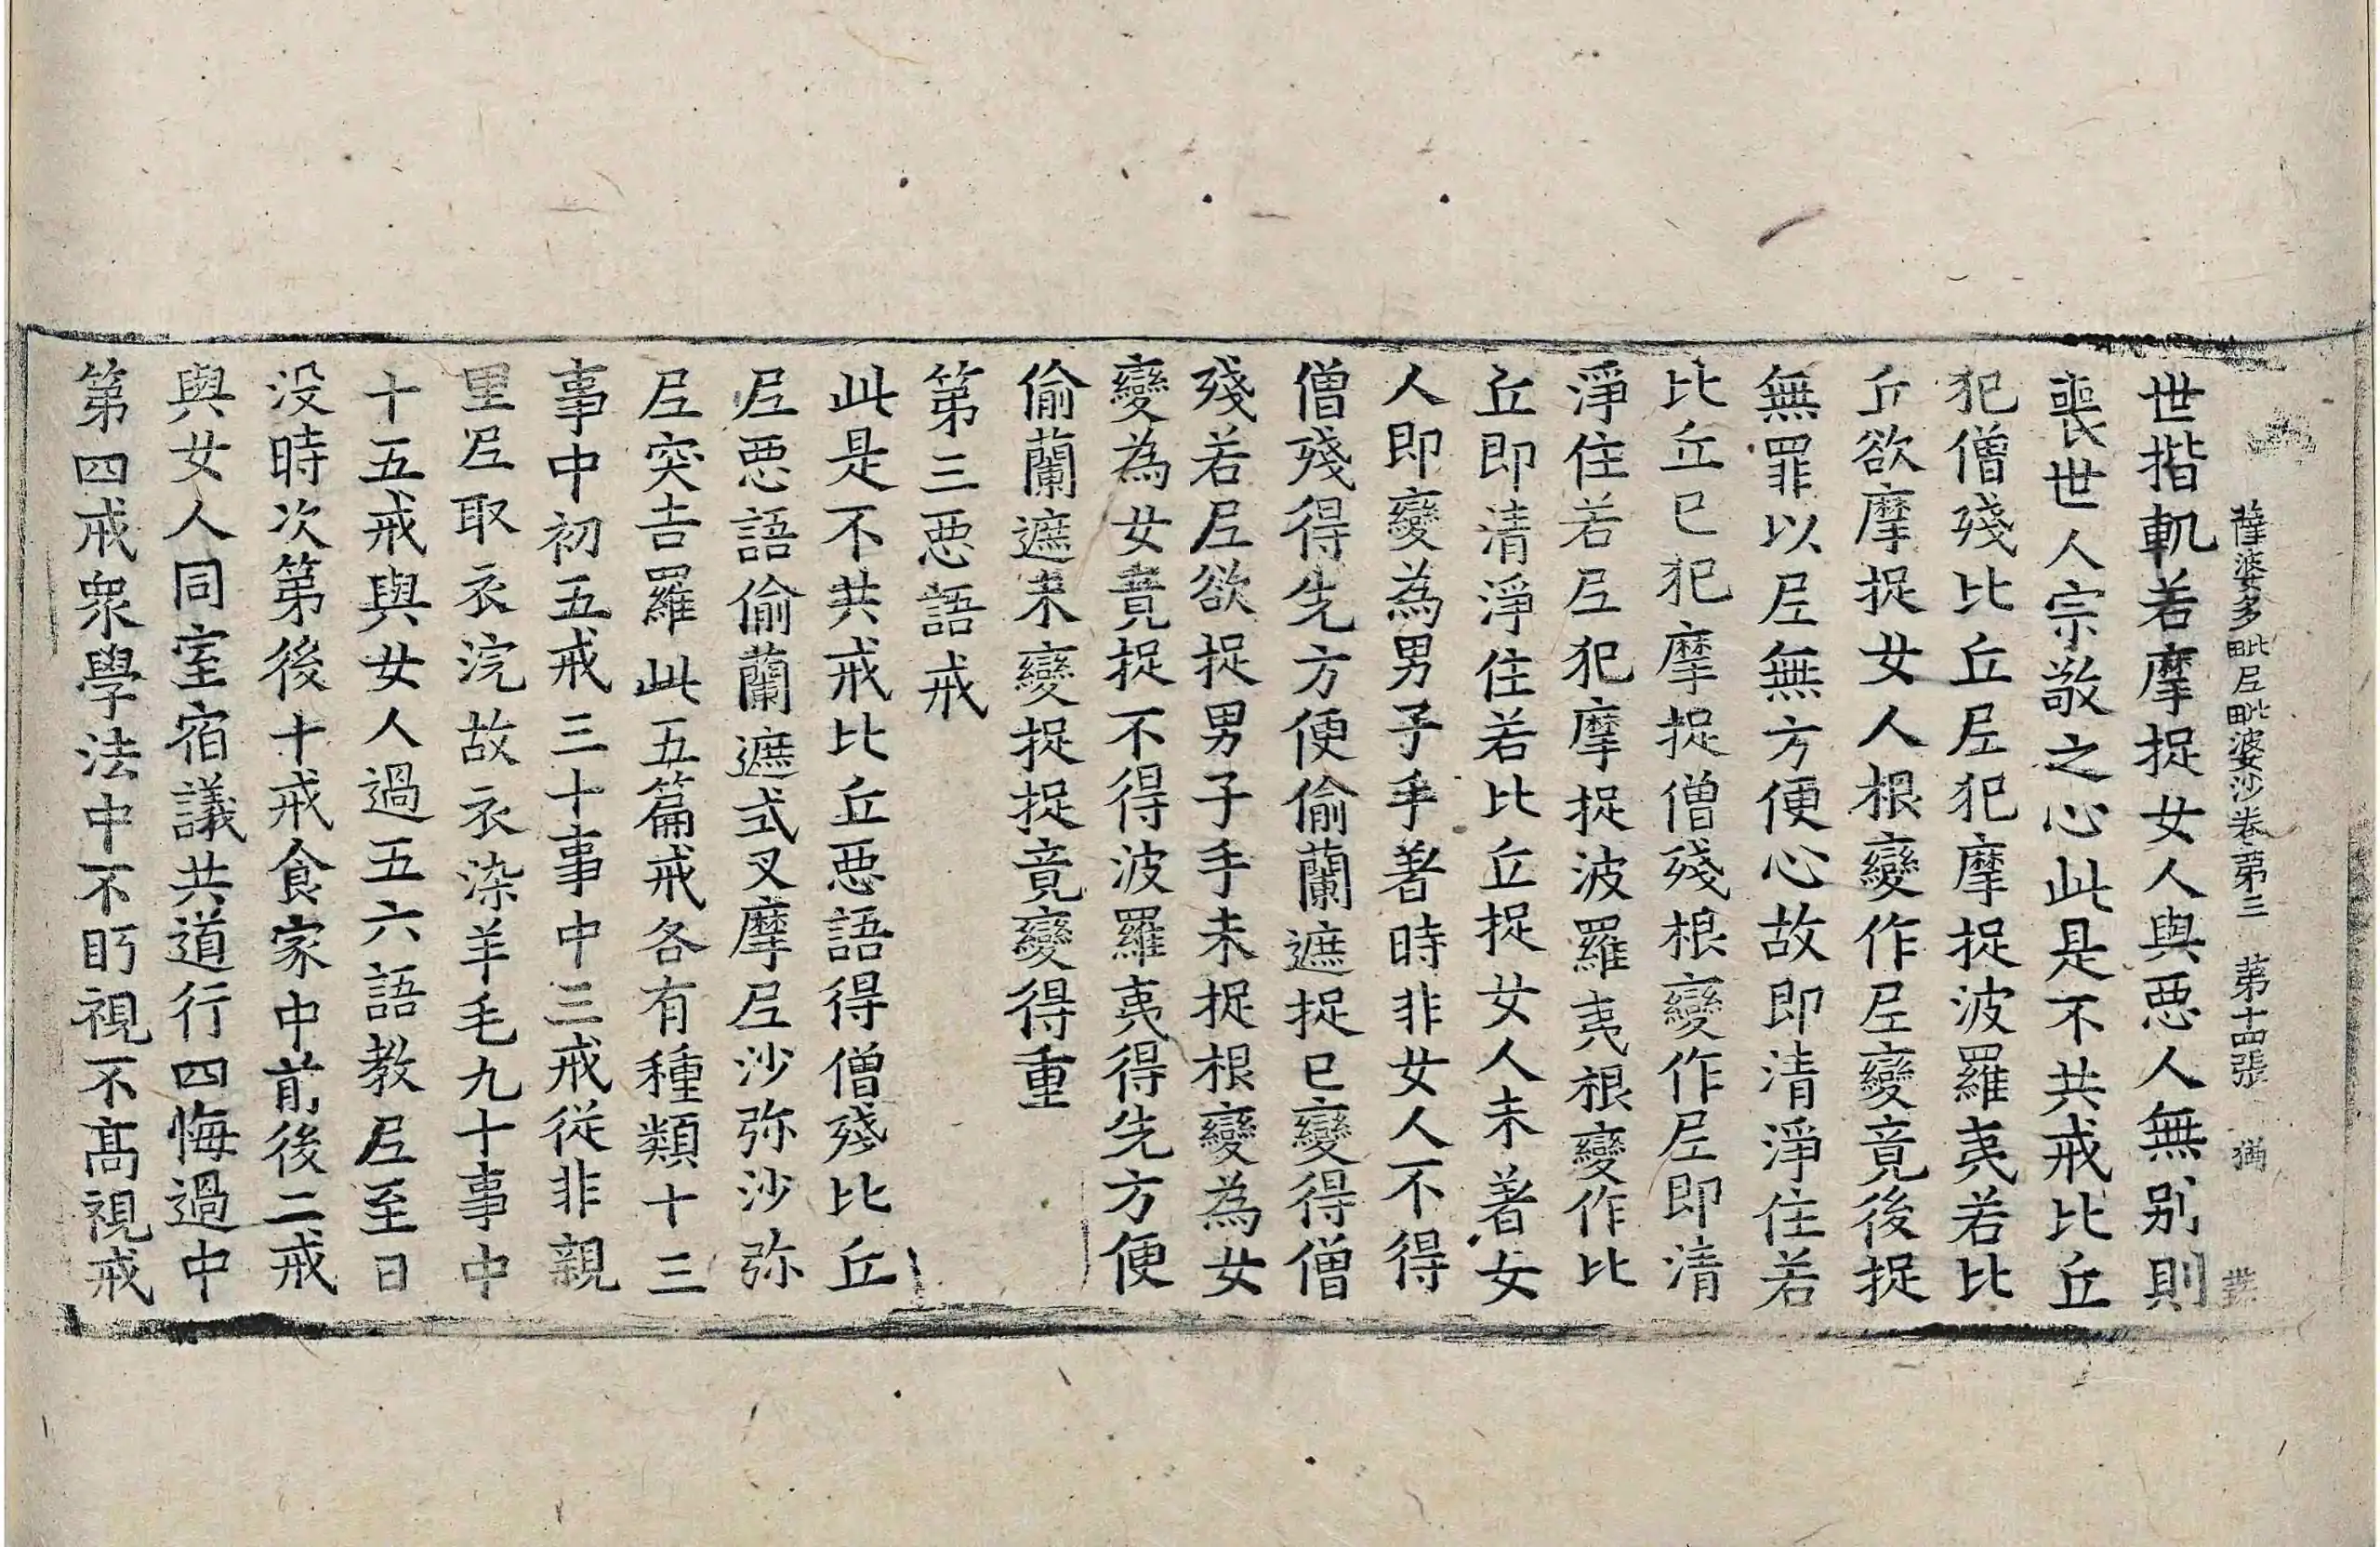 薩婆多毗尼毗婆沙卷第三　第十四張　猶
世揩軌若摩捉女人與惡人無別則
喪世人宗敬之心此是不共戒比丘
犯僧殘比丘尼犯摩捉波羅夷若比
丘欲摩捉女人根變作尼變竟後捉
無罪以尼無方便心故即清淨住若
比丘已犯摩捉僧殘根變作尼即清
淨住若尼犯摩捉波羅夷根變作比
丘即清淨住若比丘捉女人未著女
人即變為男子手著時非女人不得
僧殘得先方便偷蘭遮捉已變得僧
殘若尼欲捉男子手未捉根變為女
變為女竟捉不得波羅夷得先方便
偷蘭遮未變捉捉竟變得重
第三惡語戒
此是不共戒比丘惡語得僧殘比丘
尼惡語偷蘭遮式叉摩尼沙弥沙弥
尼突吉羅此五篇戒各有種類十三
事中初五戒三十事中三戒從非親
里尼取衣浣故衣染羊毛九十事中
十五戒與女人過五六語教尼至日
没時次第後十戒食家中前後二戒
與女人同室宿議共道行四悔過中
第四戒眾學法中不眄視不高視戒